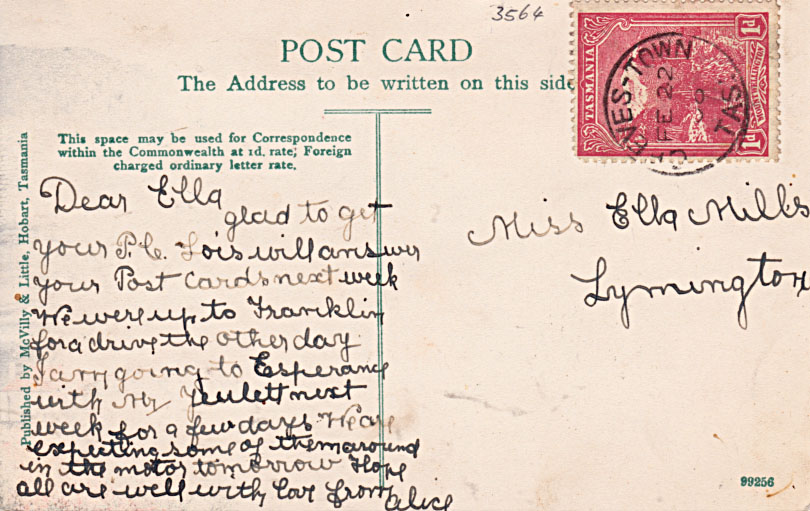 3564
POST CARD
The Address to be written on this side
TASMANIA
1d
1d
EVES-TOWN
FE 22
TAS
This space may be used for Correspondence
within the Commonwealth at 1d. rate; Foreign
charged ordinary letter rate.
Published by McVilly & Little, Hobart, Tasmania
Dear Ella
glad to get
your P.C. Lois will answer
your Post Cards next week
We were up to Franklin
for a drive the other day
I am going to Esperance
with Mr Jeulett next
week for a few days We are
expecting some of them around
in the motor tomorrow Hope
all are well with love from
Alice
Miss Ella Mills
Lymington
99256